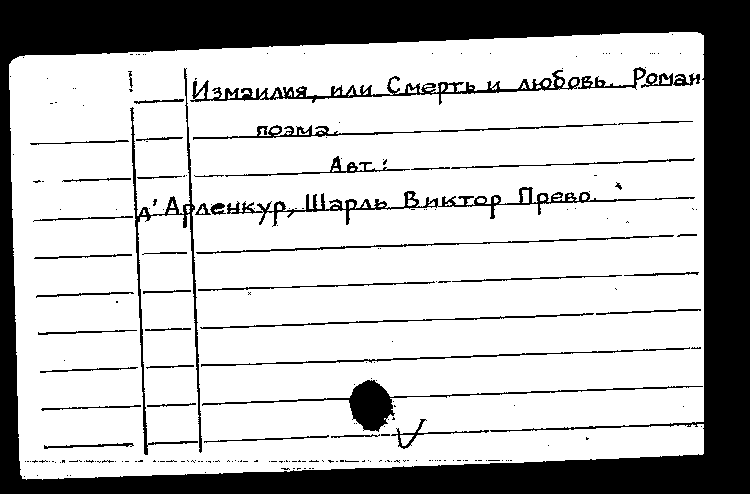 Измаилия, или Смерть и любовь. Роман-
поэма.
Авт.:
д'Арленкур, Шарль Виктор Прево.